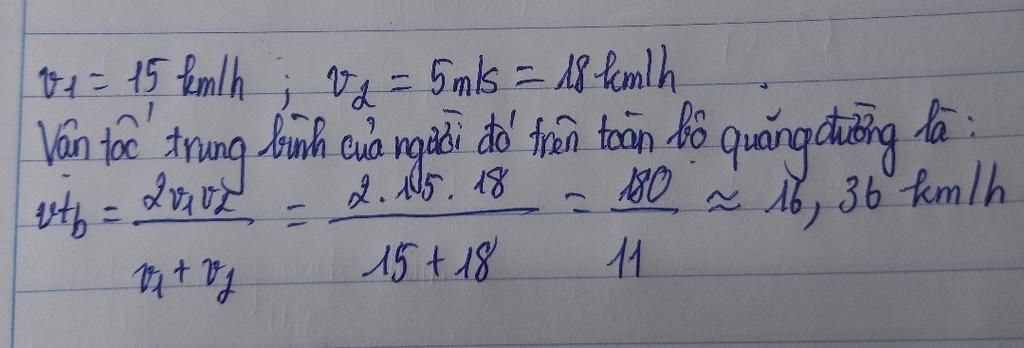 v1 = 15 km/h ; v2 = 5m/s = 18 km/h
Vận tốc trung bình của người đó trên toàn bộ quãng đường là :
vtb = 2v1v2 / v1 + v2 = 2.15.18 / 15 + 18 = 180 / 11 ≈ 16,36 km/h